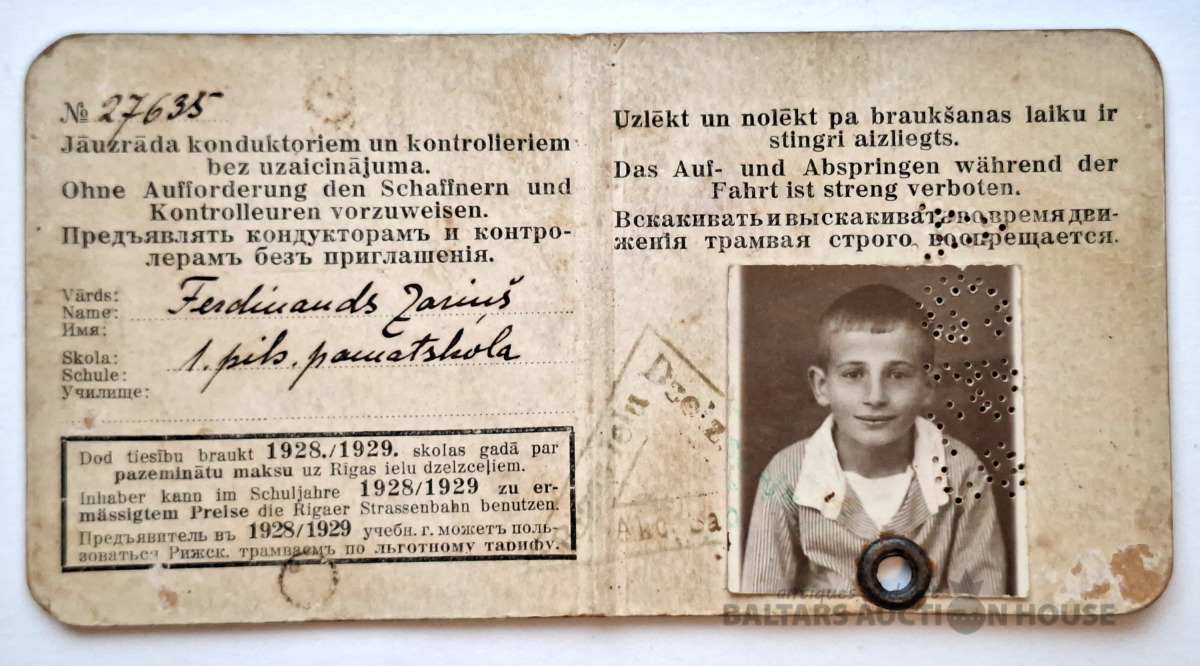 № 27635
Jāuzrāda konduktoriem un kontrolieriem
bez uzaicinājuma.
Ohne Aufforderung den Schaffnern und
Kontrolleuren vorzuweisen.
Предъявлять кондукторамъ и контро-
лерамъ безъ приглашенія.
Vārds:
Name: Ferdinands Zariņš
Имя:
Skola: 1. pils. pamatskola
Schule:
Училище:
Dod tiesību braukt 1928./1929. skolas gadā par
pazeminātu maksu uz Rīgas ielu dzelzceļiem.
Inhaber kann im Schuljahre 1928/1929 zu er-
mässigtem Preise die Rigaer Strassenbahn benutzen.
Предъявитель въ 1928/1929 учебн. г. можетъ поль-
зоваться Рижск. трамваемъ по льготному тарифу.
Uzlēkt un nolēkt pa braukšanas laiku ir
stingri aizliegts.
Das Auf- und Abspringen während der
Fahrt ist streng verboten.
Вскакивать и выскакивать во время дви-
женія трамвая строго воспрещается.
Dzelz
antiques
BALTARS AUCTION HOUSE